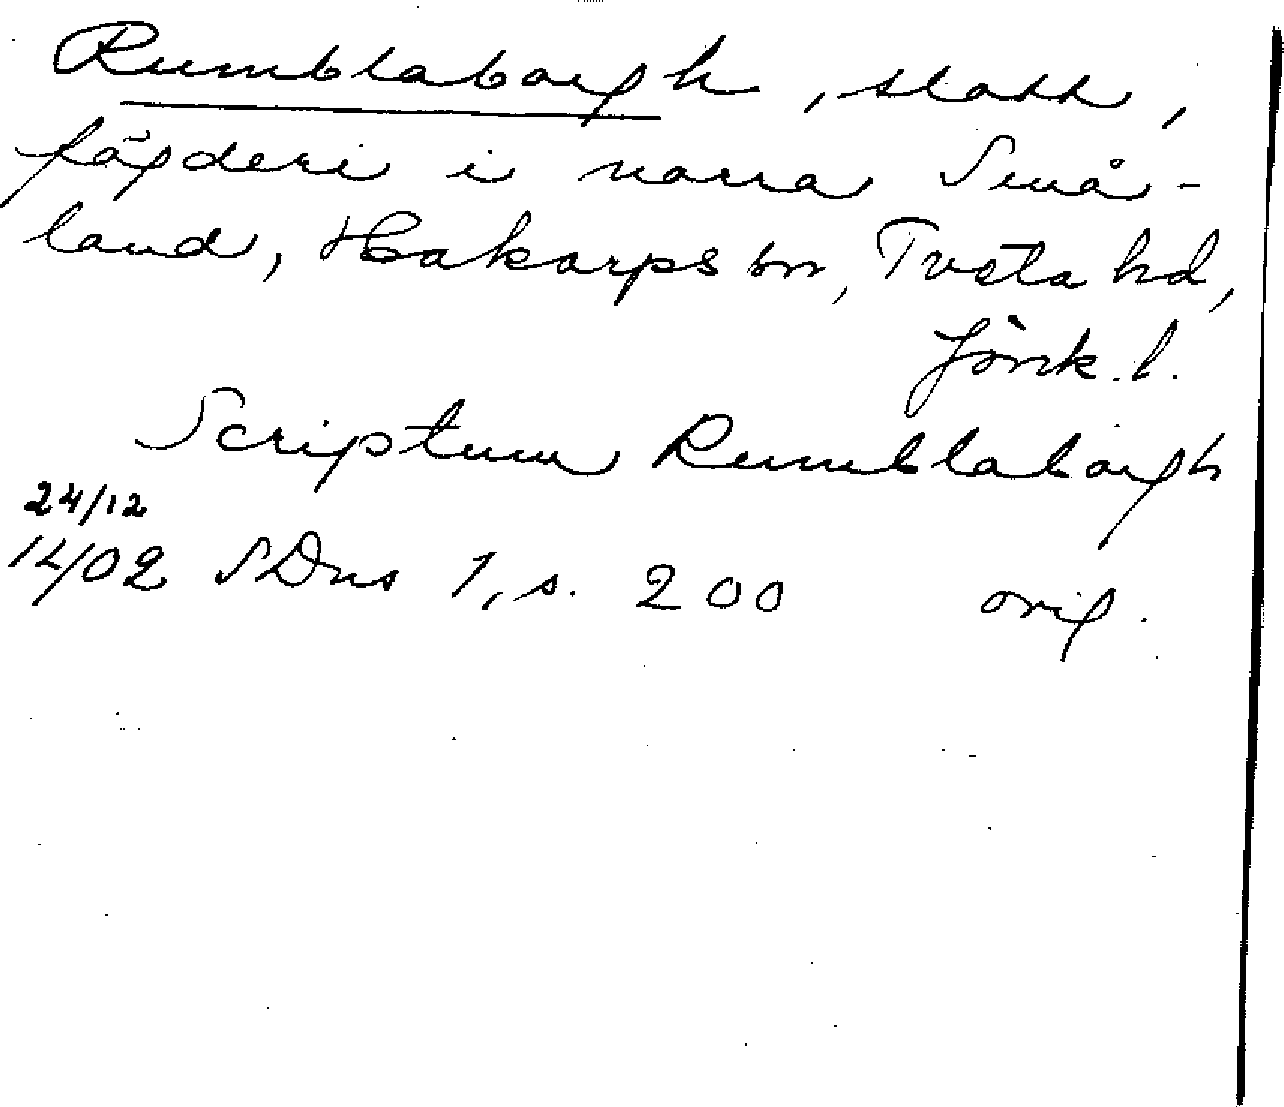 Rumblaborgh, slott,
fögderi i norra Små-
land, Hakarps sn, Tveta hd,
Jönk. l.
Scriptum Rumblaborgh
24/12
1402 SDns 1, s. 200 orig.